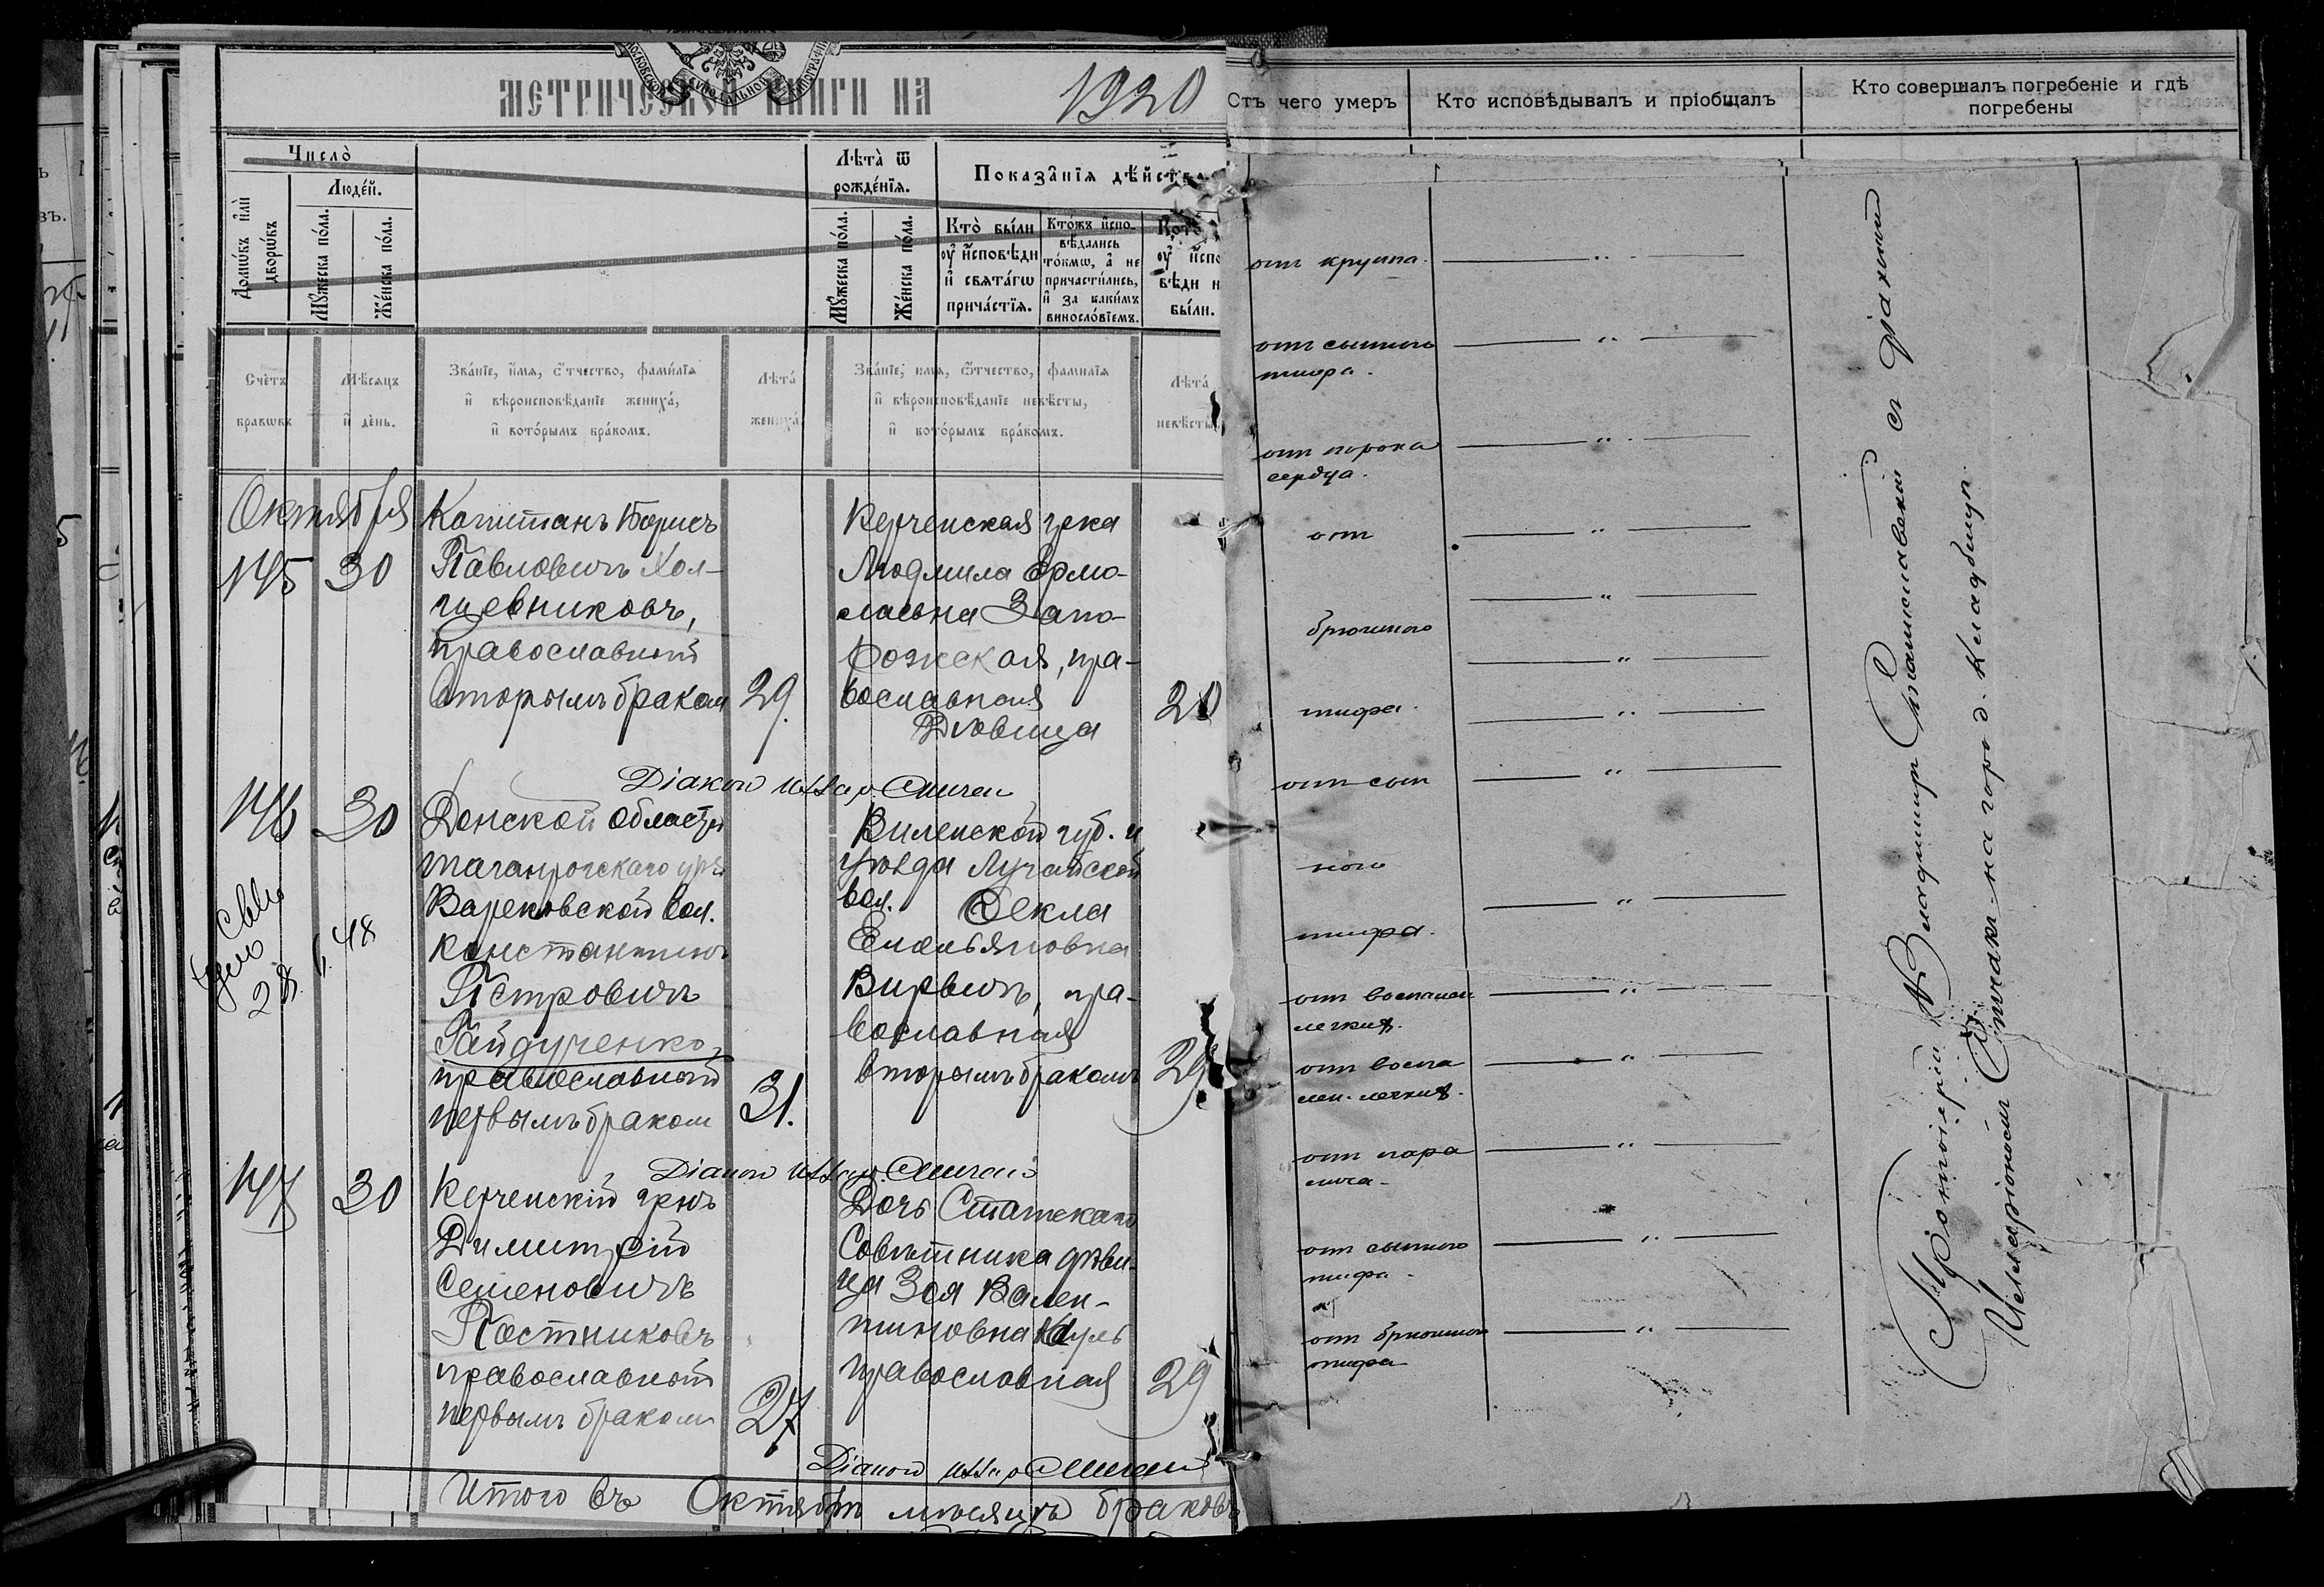 МЕТРИЧЕСКОЙ КНИГИ НА 1920
Число̀
Люде́й.
Домѡ́въ и҆лѝ дворѡ́въ
Мꙋ́жеска по́ла.
Же́нска по́ла.
Лѣта̀ ѿ рожде́нїя.
Мꙋ́жеска по́ла.
Же́нска по́ла.
Показа̑нїя дѣ́йств
Кто̀ бы́ли оу҆ и҆сповѣди и҆ свята́гѡ прича́стїя.
Кто́жъ и҆спо-вѣдались то́кмѡ, а҆ не причасти́лись, и҆ за каки́мъ винosло́вїемъ.
бы́ли.
Сче́тъ бра́кѡвъ
Мѣ́сяцъ и҆ де́нь.
Зва́нїе, и҆́мя, ѻ҆́тчество, фами́лїя
и҆ вѣроисповѣ́данїе жениха̀,
и҆ кото́рымъ бра́комъ.
Лѣта̀ жениха̀
Зва́нїе, и҆мя, ѻ҆́тчество, фамилїя
и҆ вѣроисповѣ́данїе невѣ́сты,
и҆ кото́рымъ бра́комъ.
Лѣта̀ невѣ́сты
Октября
145 30
Капитанъ Борисъ
Павловичъ Хол-
щевниковъ,
православный
вторымъ браком 29.
Керченская грка
Людмила Ермо-
лаевна Запо-
рожская, пра-
вославная
Дѣвица 20
Діакон
146 30
Донской области
Таганрогскаго
Вареновской вол.
Константинъ
Петровичъ
Гайдученко,
православный
первымъ браком 31.
Виленской губ. и
уѣзда Лучайской
вол. Ѳекла
Емельяновна
Вирвичъ, пра-
вославная
вторымъ бракомъ 29
Діакон
147 30
Керченскій грнъ
Димитрій
Семеновичъ
Постниковъ
православный
первымъ браком 27
Дочь Статскаго
Совѣтника дѣви-
ца Зоя Вален-
тиновна
православная 29
Діакон
Итого въ Октябрѣ мѣсяцѣ браковъ
Отъ чего умеръ
Кто исповѣдывалъ и пріобщалъ
Кто совершалъ погребеніе и гдѣ погребены
от крупа.
от сыпного
тифа.
от порока
сердца.
от
брюшного
тифа.
от сып
ного
тифа.
от воспален
легких.
от воспа
лен. легких.
от пара
лича.
от сыпного
тифа.
от брюшного
тифа
Протоіерій Владимир Станиславскій с Діакон
Илларіоном на город. кладбищѣ.